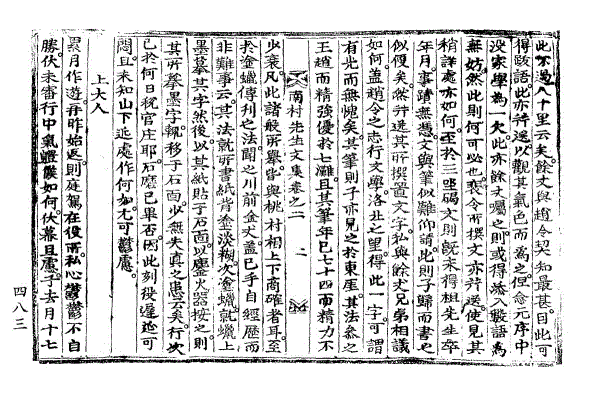 此不過八十里云矣餘丈與趙令契知最甚因此可
得敬語此亦幷送以觀其氣色而爲之但念元序中
沒家學爲一欠此亦餘丈囑之則或得添入數語爲
無妨然此則何可必也裵令所撰文亦幷送使見其
稍詳處亦如何至於三盟碣文則旣未得祖先生卒
年月事蹟無憑文與筆似難仰請此則子歸而書也
似便矣然幷送其所撰置文字私與餘丈兄弟相議
如何蓋趙令之志行文學洛北之望得此一字可謂
有光而無愧矣其筆則子亦見之於東崖其法參之
王趙而精強優於七灘且其筆年已七十四而精力不
南村先生文集卷之二 二
少衰凡此諸般所擧皆與桃村相上下商確者耳至
於塗蠟傳刋之法聞之川前金丈蓋已手自經歷而
非難事云其法就所書紙背塗淡糊次塗蠟就蠟上
墨摹其字然後以其紙貼于石面以鏖火器按之則
其所摹墨字輒移于石面少無失眞之患云矣行次
已於何日稅官庄耶石磨已畢否因此刻役遷延可
悶且未知山下近處作何如尤可鬱慮
上大人
累月作遊再昨始返則庭駕在役所私心鬱鬱不自
勝伏未審行中氣體候如何伏慕且慮子去月十七
四八三